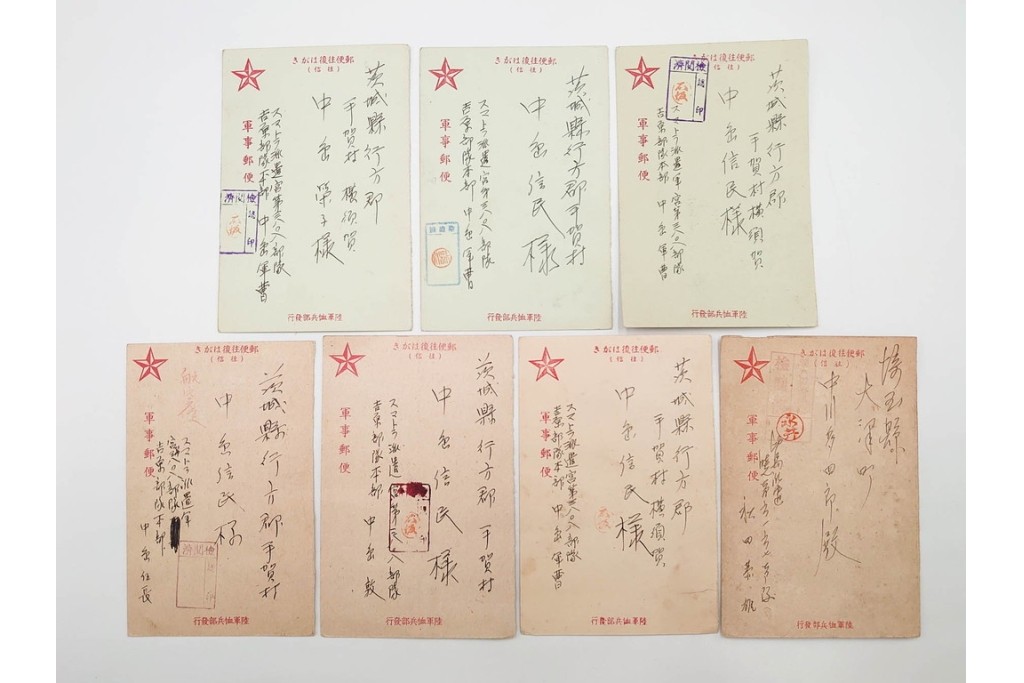 郵便往復はがき
(往信)
茨城縣行方郡
手賀村 横須賀
中島 榮子様
軍事郵便
スマトラ派遣宮第三八〇八部隊
吉原部隊本部 中島軍曹
檢閲濟
認印
陸軍恤兵部發行
郵便往復はがき
(往信)
茨城縣行方郡手賀村
中島信民様
軍事郵便
スマトラ派遣宮第三八〇八部隊
吉原部隊本部 中島軍曹
陸軍恤兵部發行
郵便往復はがき
(往信)
茨城縣行方郡
手賀村横須賀
中島信民様
軍事郵便
スマトラ派遣軍宮第三八〇八部隊
吉原部隊本部 中島軍曹
檢閲濟
認印
陸軍恤兵部發行
郵便往復はがき
(往信)
茨城縣行方郡手賀村
中島信民様
軍事郵便
スマトラ派遣軍
吉原部隊本部
檢閲濟
認印
陸軍恤兵部發行
郵便往復はがき
(往信)
茨城縣行方郡手賀村
中島信民様
軍事郵便
スマトラ派遣宮第三八〇八部隊
吉原部隊本部 中島
陸軍恤兵部發行
郵便往復はがき
(往信)
茨城縣行方郡
手賀村横須賀
中島信民様
軍事郵便
スマトラ派遣宮第三八〇八部隊
吉原部隊本部 中島軍曹
陸軍恤兵部發行
郵便往復はがき
(往信)
埼玉縣
大澤町
殿
軍事郵便
秋田
陸軍恤兵部發行